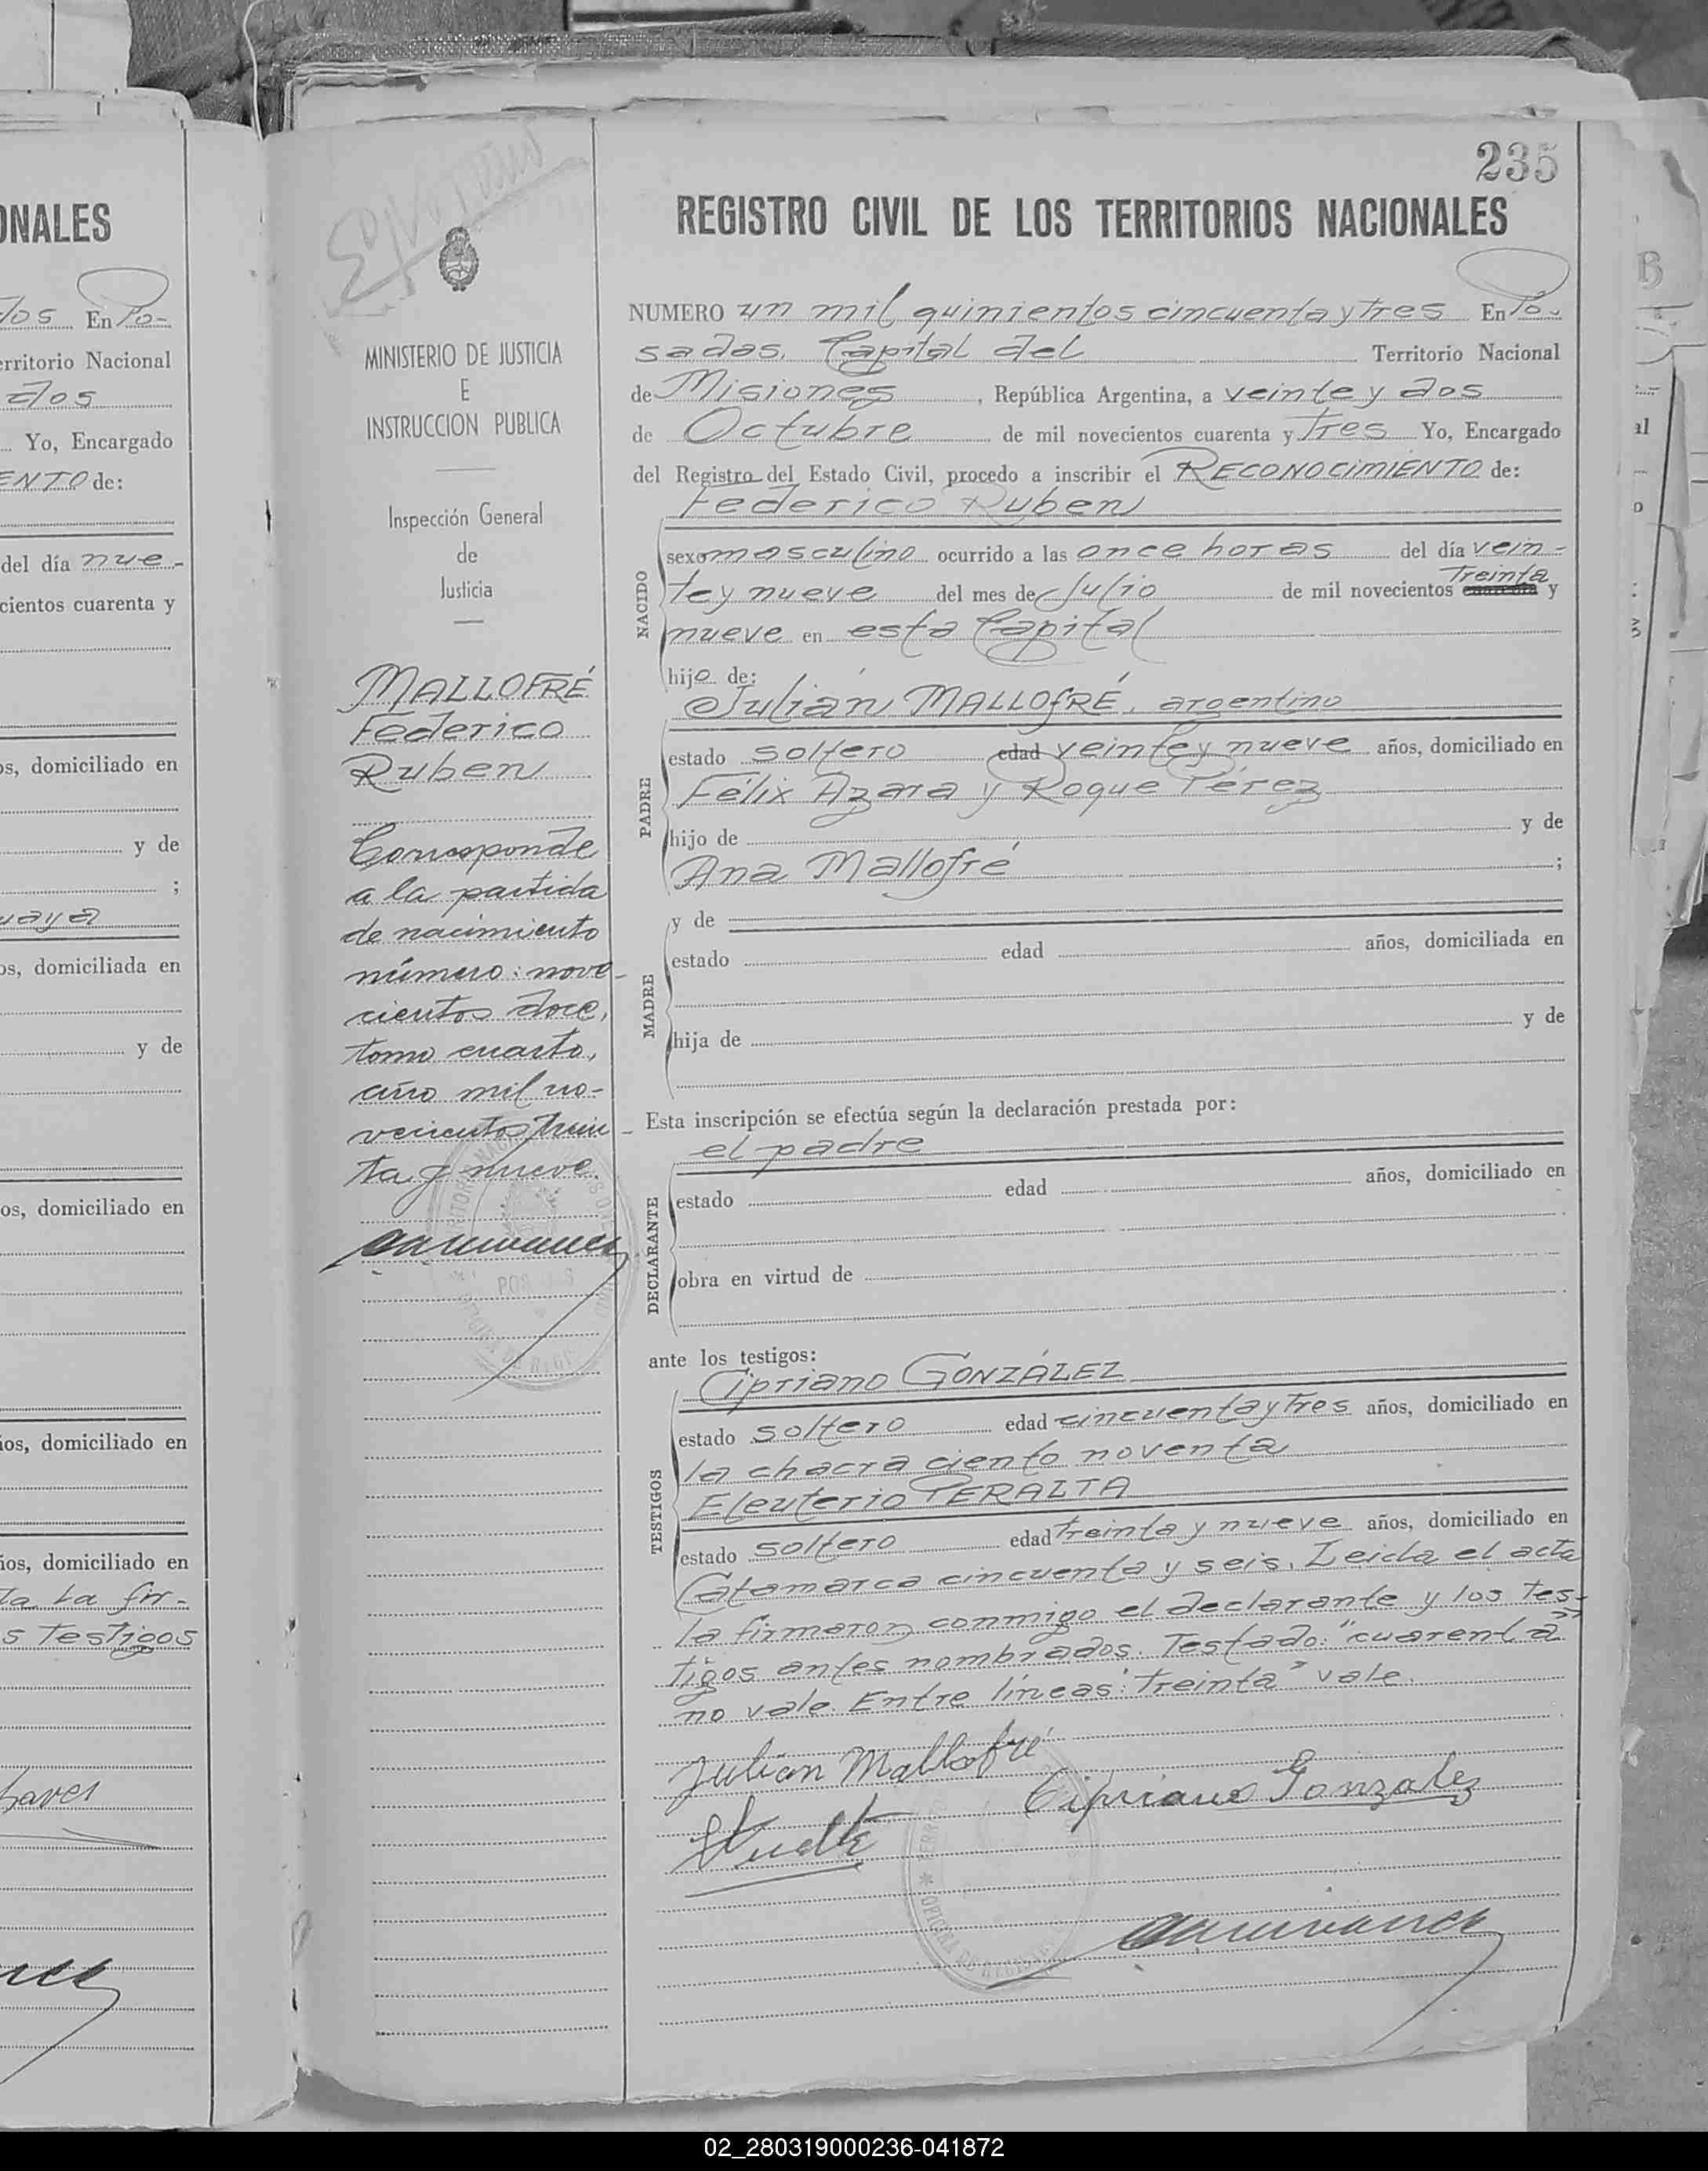 ONALES
dos En Po-
erritorio Nacional
dos
Yo, Encargado
ENTO de:
del día nue-
cientos cuarenta y
os, domiciliado en
y de
;
uaya
os, domiciliada en
y de
os, domiciliado en
ios, domiciliado en
ios, domiciliado en
la fir-
s testigos
235
REGISTRO CIVIL DE LOS TERRITORIOS NACIONALES
MINISTERIO DE JUSTICIA
E
INSTRUCCION PUBLICA
Inspección General
de
Justicia
MALLOFRÉ
Federico
Ruben
Corresponde
a la partida
de nacimiento
número: nove-
cientos doce,
tomo cuarto,
año mil no-
vecientos trein-
ta y nueve.
NUMERO un mil quinientos cincuenta y tres En Po-
sadas, Capital del Territorio Nacional
de Misiones, República Argentina, a veinte y dos
de Octubre de mil novecientos cuarenta y tres Yo, Encargado
del Registro del Estado Civil, procedo a inscribir el RECONOCIMIENTO de:
NACIDO
Federico Ruben
sexo masculino ocurrido a las once horas del día vein-
te y nueve del mes de Julio de mil novecientos cuarenta treinta y
nueve en esta Capital
hijo de:
PADRE
Julián MALLOFRÉ, argentino
estado soltero edad veinte y nueve años, domiciliado en
Félix Azara y Roque Pérez
hijo de y de
Ana Mallofré ;
MADRE
y de
estado edad años, domiciliada en
hija de y de
Esta inscripción se efectúa según la declaración prestada por:
DECLARANTE
el padre
estado edad años, domiciliado en
obra en virtud de
ante los testigos:
TESTIGOS
Cipriano GONZÁLEZ
estado soltero edad cincuenta y tres años, domiciliado en
la chacra ciento noventa
Eleuterio PERALTA
estado soltero edad treinta y nueve años, domiciliado en
Catamarca cincuenta y seis. Leida el acta
la firmaron conmigo el declarante y los tes-
tigos antes nombrados. Testado: "cuarenta"
no vale. Entre líneas: "treinta" vale.
Julián Mallofré
Cipriano Gonzalez
02_280319000236-041872